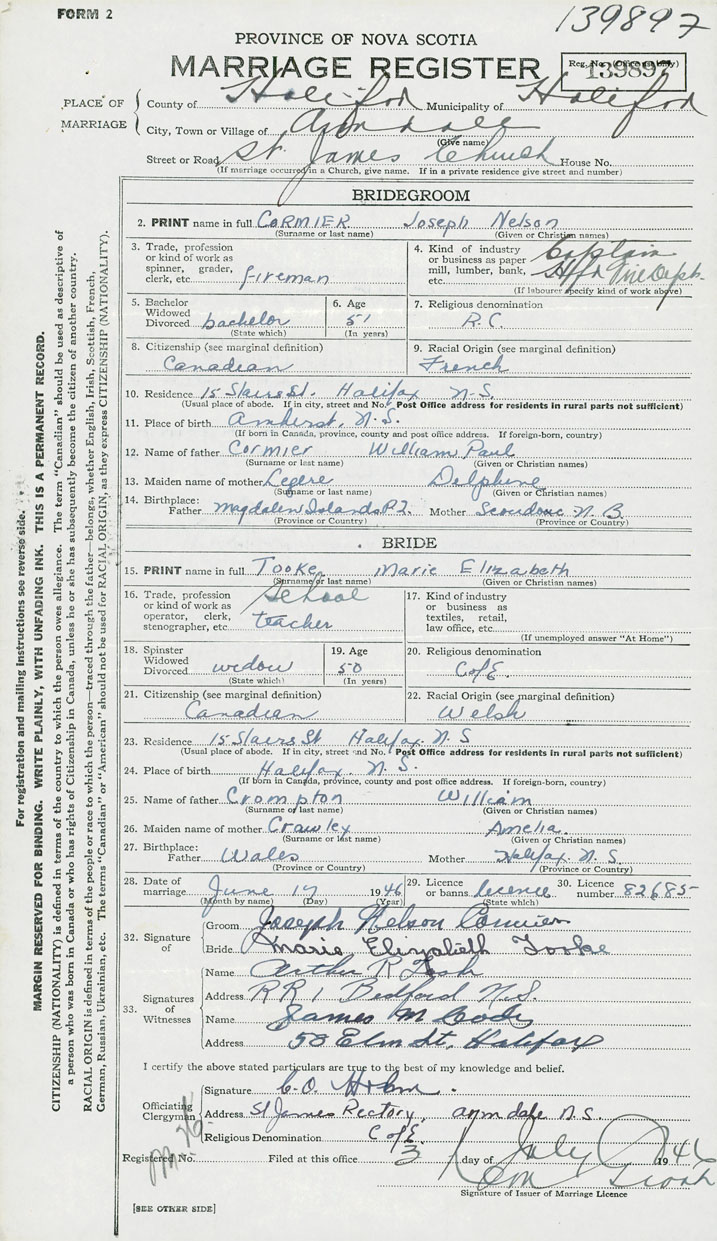 FORM 2
139897
PROVINCE OF NOVA SCOTIA
MARRIAGE REGISTER
Reg. No. (Office use only)
139897
PLACE OF MARRIAGE
County of Halifax Municipality of Halifax
City, Town or Village of Armdale
(Give name)
Street or Road St. James Church House No.
(If marriage occurred in a Church, give name. If in a private residence give street and number)
BRIDEGROOM
2. PRINT name in full CORMIER Joseph Nelson
(Surname or last name) (Given or Christian names)
3. Trade, profession or kind of work as spinner, grader, clerk, etc. fireman
4. Kind of industry or business as paper mill, lumber, bank, etc. Captain Hfx Fire Dept.
(If labourer specify kind of work above)
5. Bachelor Widowed Divorced bachelor
(State which)
6. Age 51
(In years)
7. Religious denomination R.C.
8. Citizenship (see marginal definition) Canadian
9. Racial Origin (see marginal definition) French
10. Residence 15 Stairs St. Halifax N.S.
(Usual place of abode. If in city, street and No. Post Office address for residents in rural parts not sufficient)
11. Place of birth Amherst, N.S.
(If born in Canada, province, county and post office address. If foreign-born, country)
12. Name of father Cormier William Paul
(Surname or last name) (Given or Christian names)
13. Maiden name of mother Legere Delphine
(Surname or last name) (Given or Christian names)
14. Birthplace: Father Magdalen Islands P.Q. Mother Scoudouc N.B.
(Province or Country) (Province or Country)
BRIDE
15. PRINT name in full Tooke Marie Elizabeth
(Surname or last name) (Given or Christian names)
16. Trade, profession or kind of work as operator, clerk, stenographer, etc. School teacher
17. Kind of industry or business as textiles, retail, law office, etc.
(If unemployed answer "At Home")
18. Spinster Widowed Divorced widow
(State which)
19. Age 50
(In years)
20. Religious denomination C of E.
21. Citizenship (see marginal definition) Canadian
22. Racial Origin (see marginal definition) Welsh
23. Residence 15 Stairs St Halifax N.S
(Usual place of abode. If in city, street and No. Post Office address for residents in rural parts not sufficient)
24. Place of birth Halifax, N.S.
(If born in Canada, province, county and post office address. If foreign-born, country)
25. Name of father Crompton William
(Surname or last name) (Given or Christian names)
26. Maiden name of mother Crawley Amelia.
(Surname or last name) (Given or Christian names)
27. Birthplace: Father Wales Mother Halifax N.S.
(Province or Country) (Province or Country)
28. Date of marriage June 17 1946
(Month by name) (Day) (Year)
29. Licence or banns licence
(State which)
30. Licence number 82685
32. Signature of
Groom Joseph Nelson Cormier
Bride Marie Elizabeth Tooke
33. Signatures of Witnesses
Name Arthur R
Address RR 1 Bedford N.S.
Name James M
Address 58 Elm St, Halifax
I certify the above stated particulars are true to the best of my knowledge and belief.
Officiating Clergyman
Signature C.O.
Address St James Rectory, Armdale N.S.
Religious Denomination C of E.
Registered No. Filed at this office 3 day of July 1946
Signature of Issuer of Marriage Licence
[SEE OTHER SIDE]
For registration and mailing instructions see reverse side.
MARGIN RESERVED FOR BINDING. WRITE PLAINLY, WITH UNFADING INK. THIS IS A PERMANENT RECORD.
CITIZENSHIP (NATIONALITY) is defined in terms of the country to which the person owes allegiance. The term "Canadian" should be used as descriptive of
a person who was born in Canada or who has rights of Citizenship in Canada, unless he or she has subsequently become the citizen of another country.
RACIAL ORIGIN is defined in terms of the people or race to which the person—traced through the father—belongs, whether English, Irish, Scottish, French,
German, Russian, Ukrainian, etc. The terms "Canadian" or "American" should not be used for RACIAL ORIGIN, as they express CITIZENSHIP (NATIONALITY).